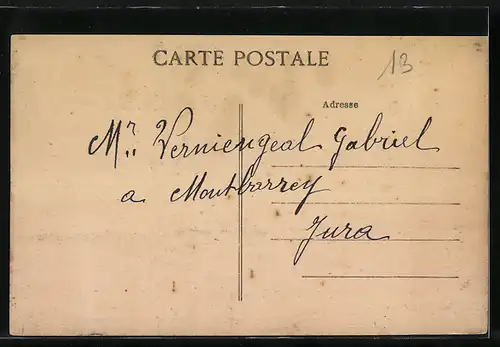 CARTE POSTALE
13
Adresse
Mr. Verniengeal Gabriel
a Montbarrey
Jura